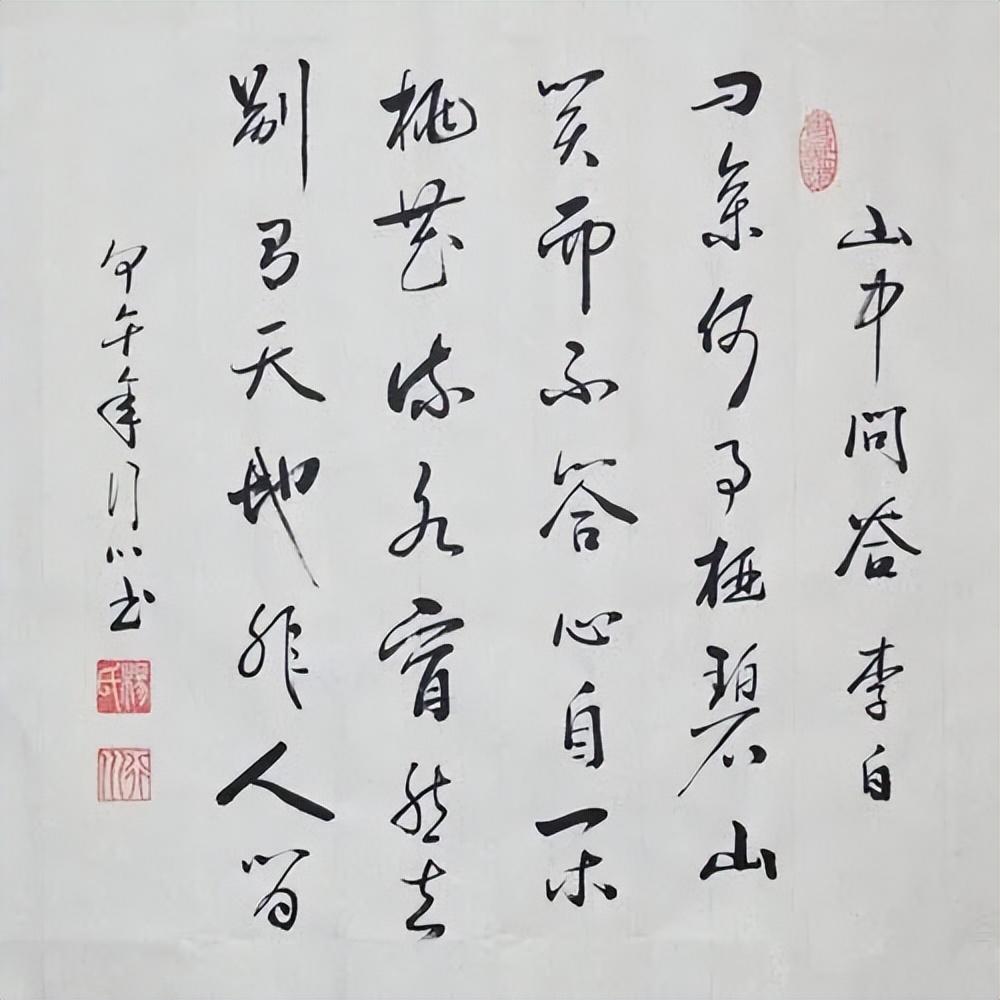 山中問答 李白
問余何事栖碧山
笑而不答心自閑
桃花流水窅然去
別有天地非人間
甲午年行川书
楊氏
行川